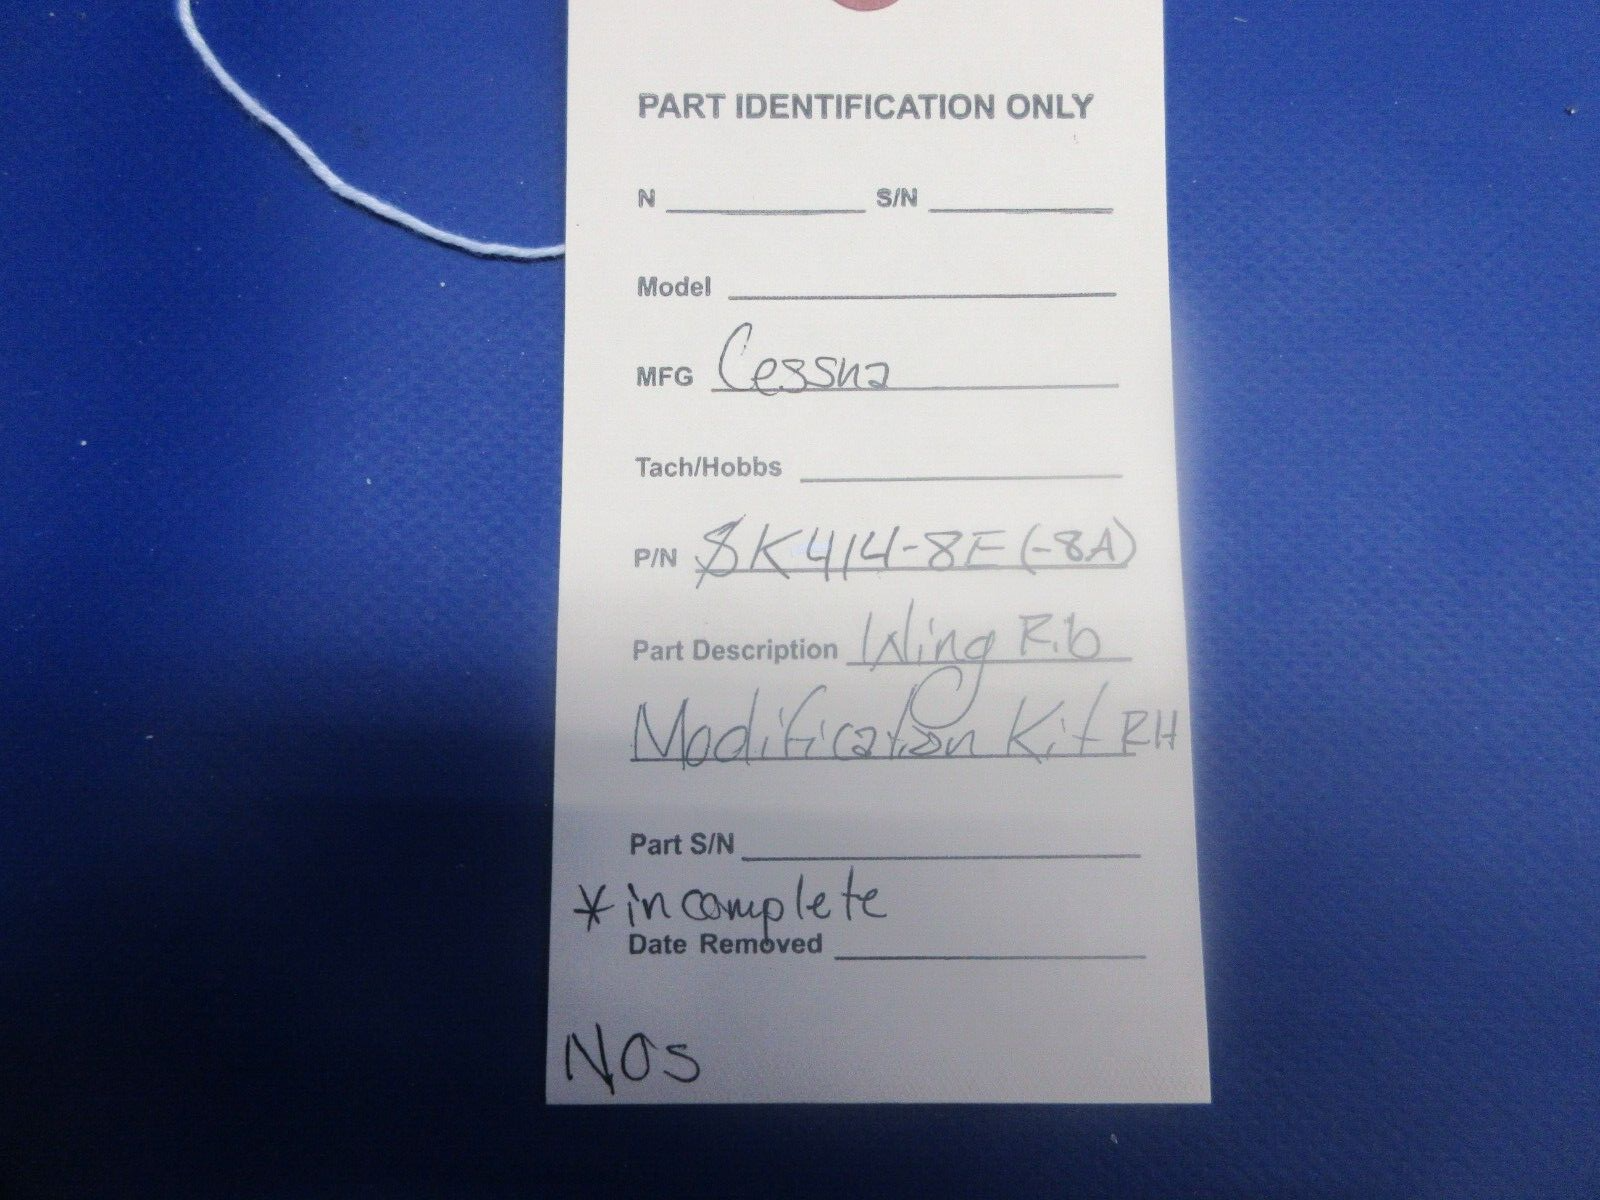 PART IDENTIFICATION ONLY
N S/N
Model
MFG Cessna
Tach/Hobbs
P/N SK414-8E (-8A)
Part Description Wing Rib
Modification Kit RH
Part S/N
* incomplete
Date Removed
NOS